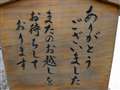 ありがとう
ございました
またのお越しを
お待ちして
おります